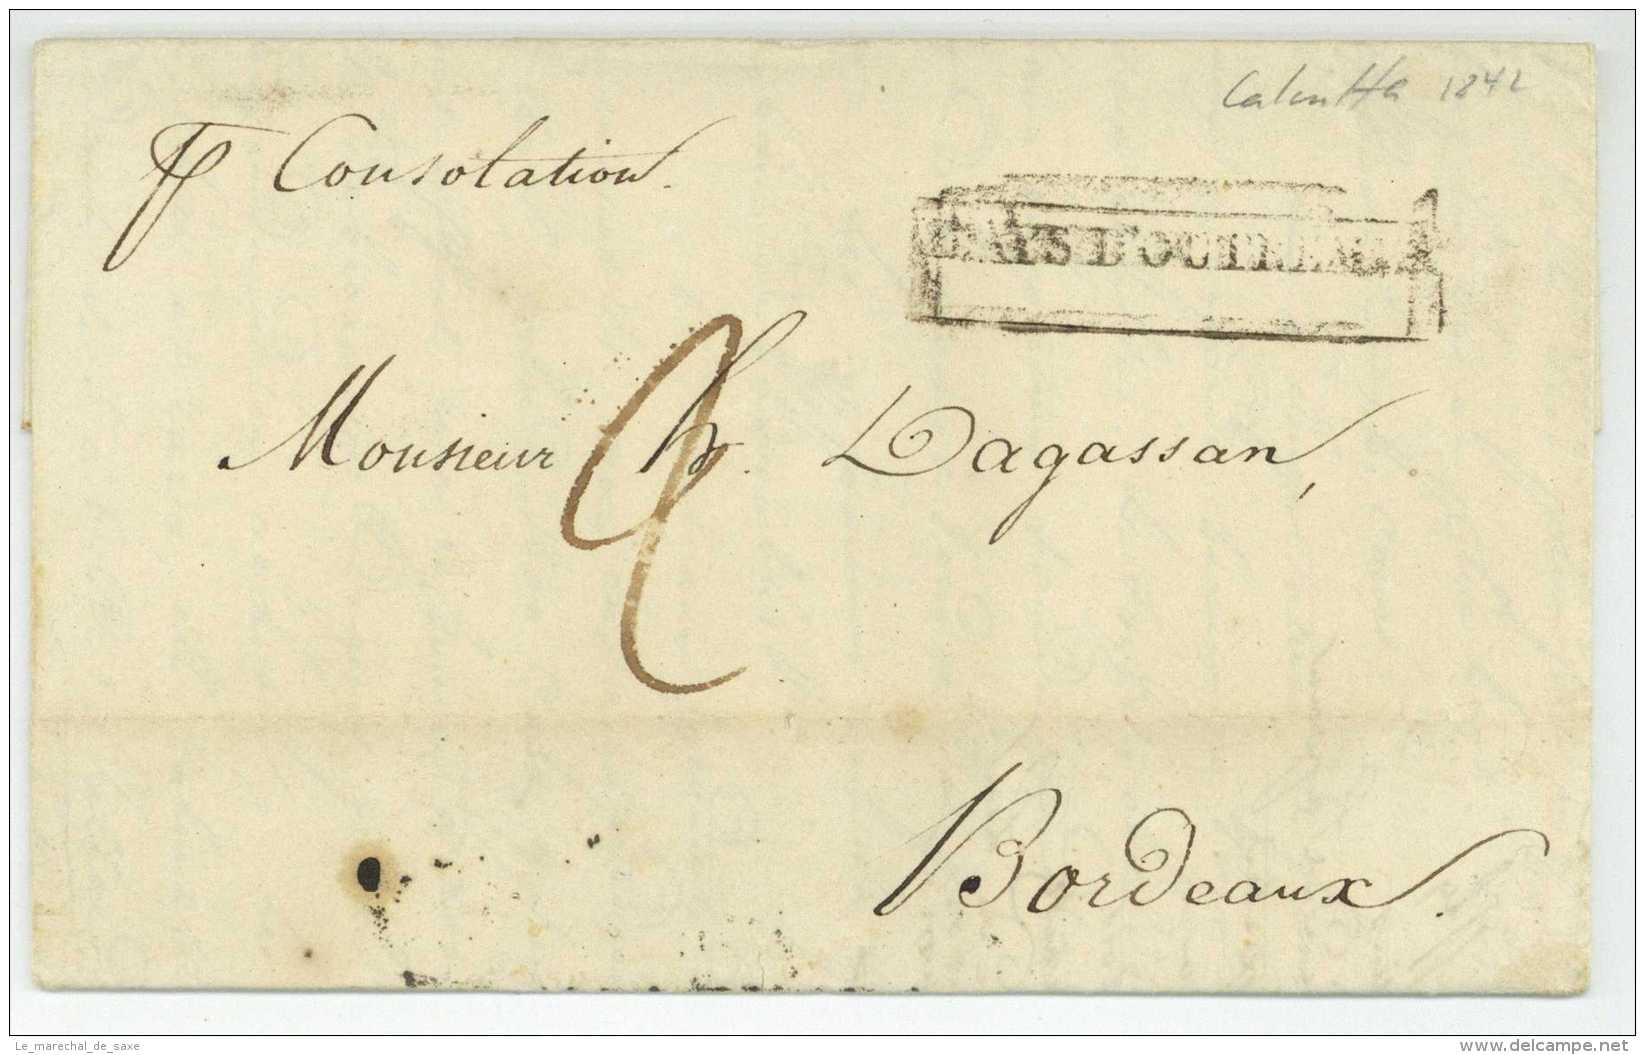 Calcutta 1842
pr Consolation.
PAYS D'OUTREMER
Monsieur Ch. Dagassan,
2
Bordeaux.
Le_marechal_de_saxe
www.delcampe.net